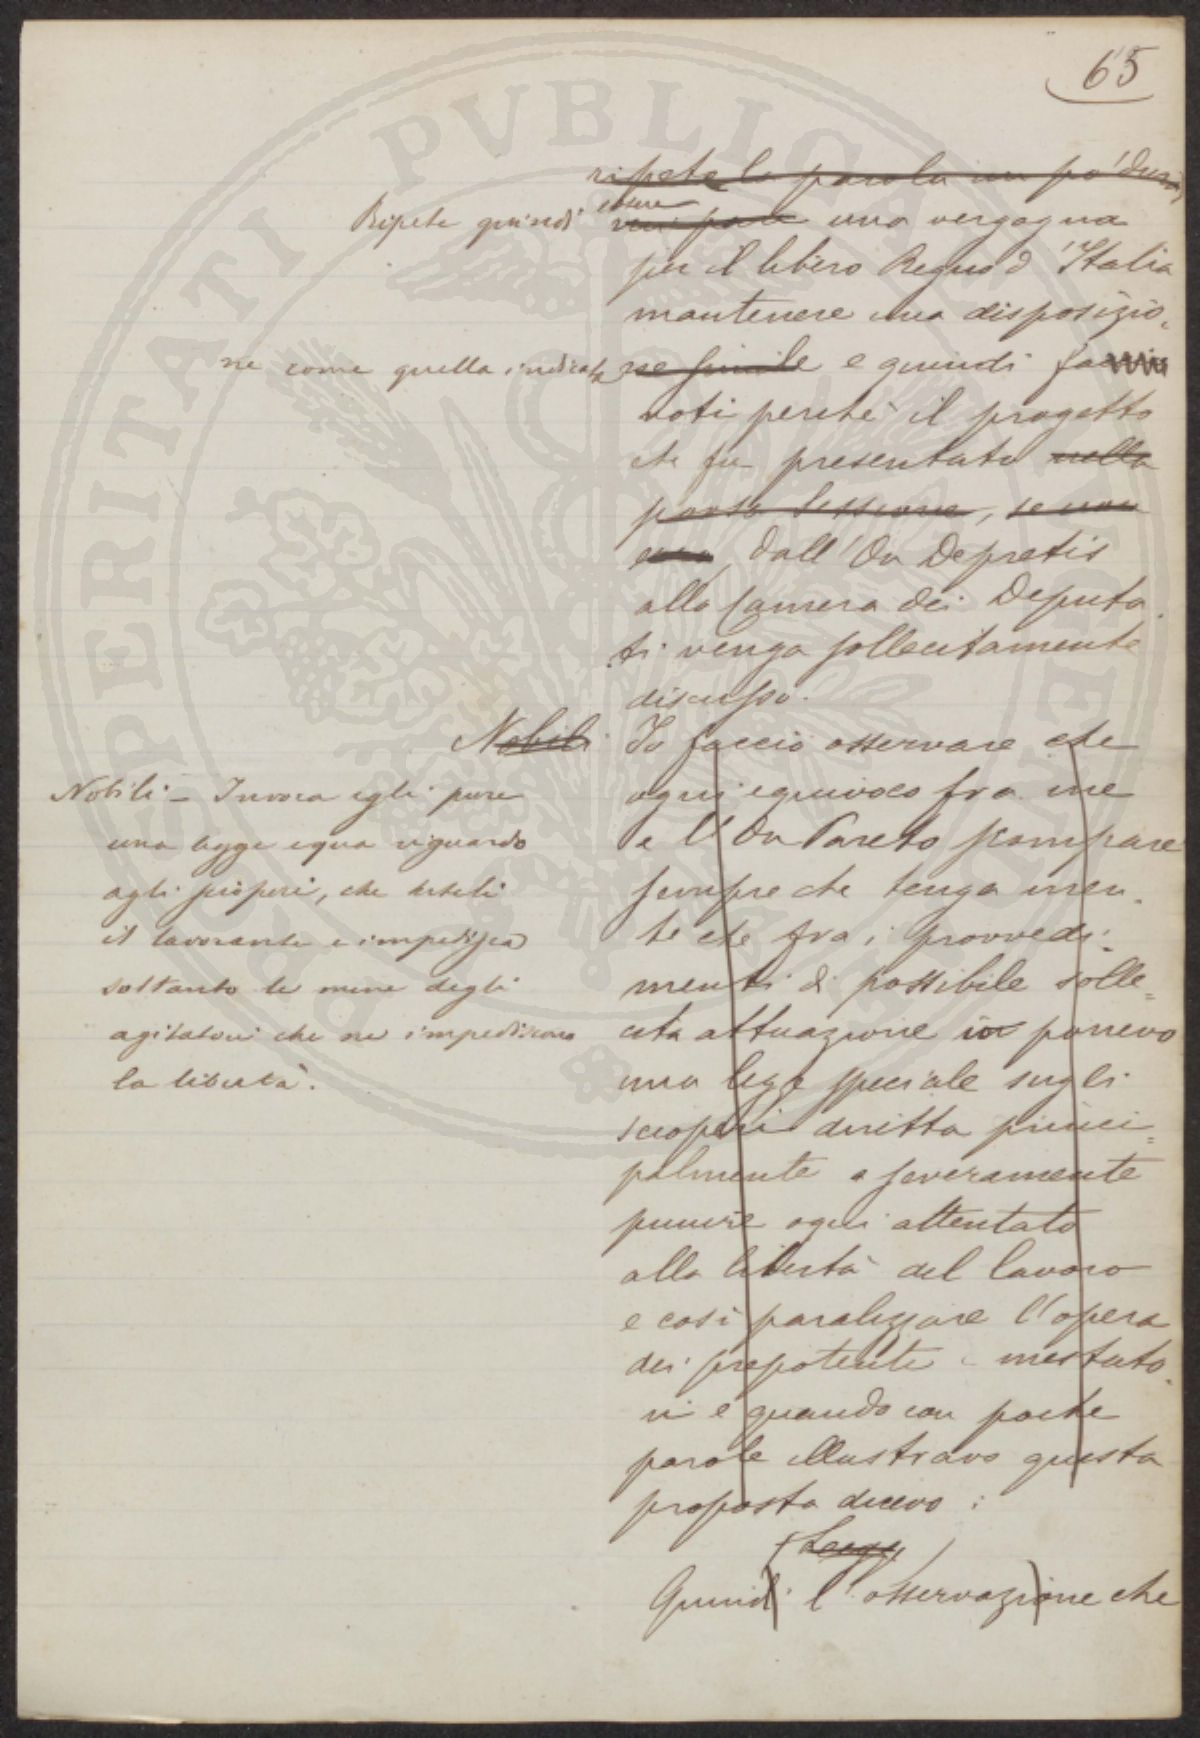 65
ripete la parola un po' dura,
Ripete quindi essere mi pare una vergogna
per il libero Regno d'Italia
mantenere una disposizio-
ne come quella indicata ne simile e quindi fa
voti perchè il progetto
che fu presentato nella
scorsa Sessione, se non
erro, dall'On Depretis
alla Camera dei Deputa-
ti venga sollecitamente
discusso.
Nobili Io faccio osservare che
ogni equivoco fra me
e l'On Pareto scompare
sempre che tenga men-
te che fra i provvedi-
menti di possibile solle-
cita attuazione io ponevo
una legge speciale sugli
scioperi diretta princi-
palmente a severamente
punire ogni attentato
alla libertà del lavoro
e così paralizzare l'opera
dei prepotenti e mestato-
ri e quando con poche
parole illustravo questa
proposta dicevo:
(Legge)
Quindi l'osservazione che
Nobili - Invoca egli pure
una legge equa riguardo
agli scioperi, che tuteli
il lavorante e impedisca
soltanto le mene degli
agitatori che ne impediscono
la libertà.
PERITATI PVBLICAE